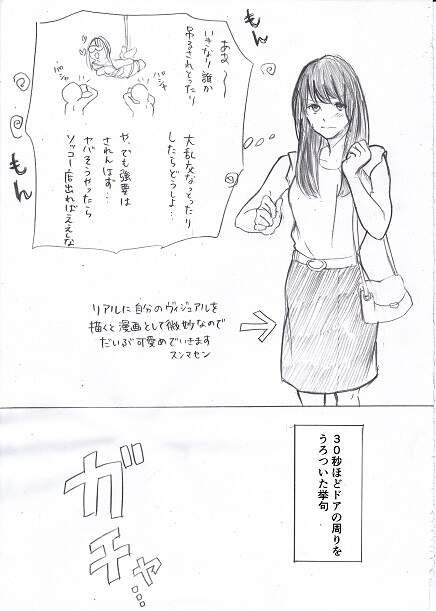 もん
あぁ〜
いきなり誰か
吊るされとったり
パシャ
パシャ
大乱交なっとったり
したらどうしよ…
や、でも強要は
されんはず…
ヤバそうやったら
ソッコー店出ればええしな
もん
リアルに自分のヴィジュアルを
描くと漫画として微妙なので
だいぶ可愛めでいきます
スンマセン
30秒ほどドアの周りを
うろついた挙句
ガチャ…